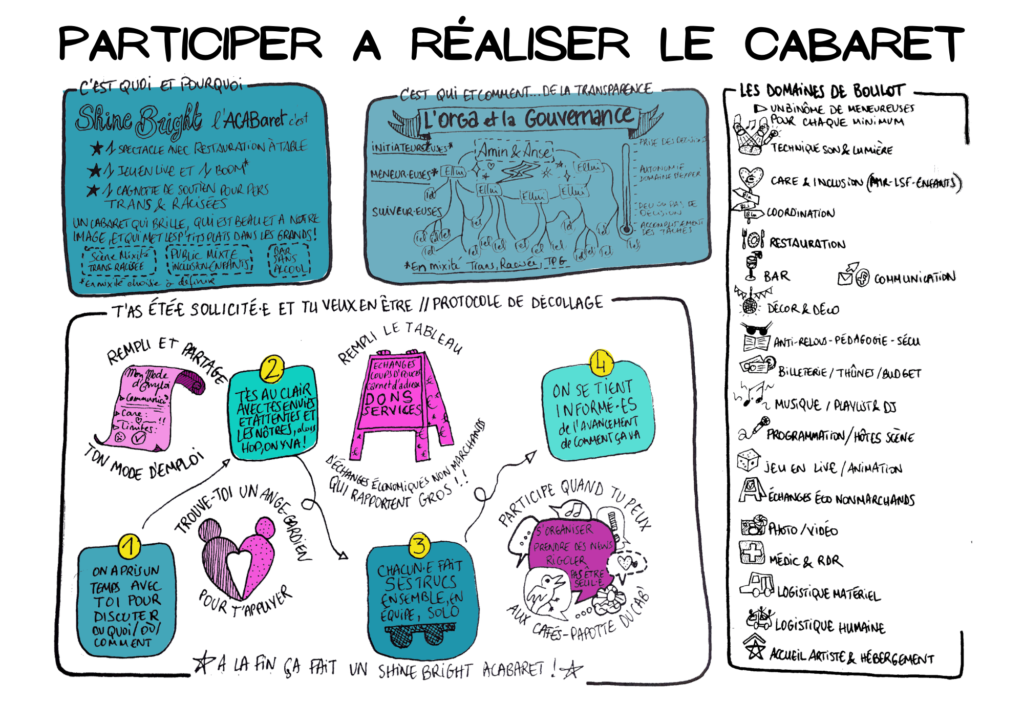 PARTICIPER A RÉALISER LE CABARET
C'EST QUOI ET POURQUOI
Shine Bright l'ACABaret c'est
★ 1 SPECTACLE AVEC RESTAURATION À TABLE
★ 1 JEU EN LIVE ET 1 BOOM*
★ 1 CAGNOTTE DE SOUTIEN POUR PERS
TRANS & RACISÉES
UN CABARET QUI BRILLE, QUI EST BEAU ET A NOTRE
IMAGE, ET QUI MET LES P'TITS PLATS DANS LES GRANDS!
Scène Mixité
TRANS RACISÉE
PUBLIC MIXTE
INCLUSION (ENFANTS)
BAR
SANS
ALCOOL
*En mixité choisie à définir
C'EST QUI ET COMMENT... DE LA TRANSPARENCE
L'orga et la Gouvernance
INITIATEUR·EUSES*
Amin & Anse
MENEUR·EUSES*
Ellui
Ellui
Ellui
Ellui
SUIVEUR·EUSES
PRISE DES DÉCISIONS
AUTONOMIE
PEU OU PAS DE
DÉCISION
ACCOMPLISSEMENT
DES TÂCHES
*En mixité Trans, Racisée, TPG
LES DOMAINES DE BOULOT
▷ UN BINÔME DE MENEUREUSES
POUR CHAQUE MINIMUM
TECHNIQUE SON & LUMIÈRE
CARE & INCLUSION (PMR-LSF-ENFANTS)
COORDINATION
RESTAURATION
BAR
COMMUNICATION
DÉCOR & DÉCO
ANTI-RELOUS-PÉDAGOGIE-SÉCU
BILLETERIE / THÛNES / BUDGET
MUSIQUE / PLAYLIST & DJ
PROGRAMMATION / HÔTES SCÈNE
JEU EN LIVE / ANIMATION
ÉCHANGES ÉCO NON MARCHANDS
PHOTO / VIDÉO
MÉDIC & RDR
LOGISTIQUE MATÉRIEL
LOGISTIQUE HUMAINE
ACCUEIL ARTISTE & HÉBERGEMENT
T'AS ÉTÉ·E SOLLICITÉ·E ET TU VEUX EN ÊTRE // PROTOCOLE DE DÉCOLLAGE
1
ON A PRIS UN
TEMPS AVEC
TOI POUR
DISCUTER
DU QUOI / OÙ /
COMMENT
REMPLI ET PARTAGE
TON MODE D'EMPLOI
Mon Mode
d'Emploi
Care:
Limites:
TROUVE-TOI UN ANGE-GARDIEN
POUR T'APPUYER
2
T'ES AU CLAIR
AVEC TES ENVIES
ET ATTENTES ET
LES NÔTRES, alors
HOP, ON Y VA!
REMPLI LE TABLEAU
ECHANGES
COUPS D'POUCE
Carnet d'adresse
DONS
SERVICES
D'ÉCHANGES ÉCONOMIQUES NON MARCHANDS
QUI RAPPORTENT GROS!!
3
CHACUN·E FAIT
SES TRUCS
ENSEMBLE, EN
EQUIPE, SOLO
4
ON SE TIENT
INFORMÉ·ES
de l'AVANCEMENT
de COMMENT ÇA VA
PARTICIPE QUAND TU PEUX
AUX CAFÉS-PAPOTTE DU CAB'
S'ORGANISER
PRENDRE DES NEWS
RIGOLER
PAS ÊTRE
SEUL·E
★ A LA FIN ÇA FAIT UN SHINE BRIGHT ACABARET! ★